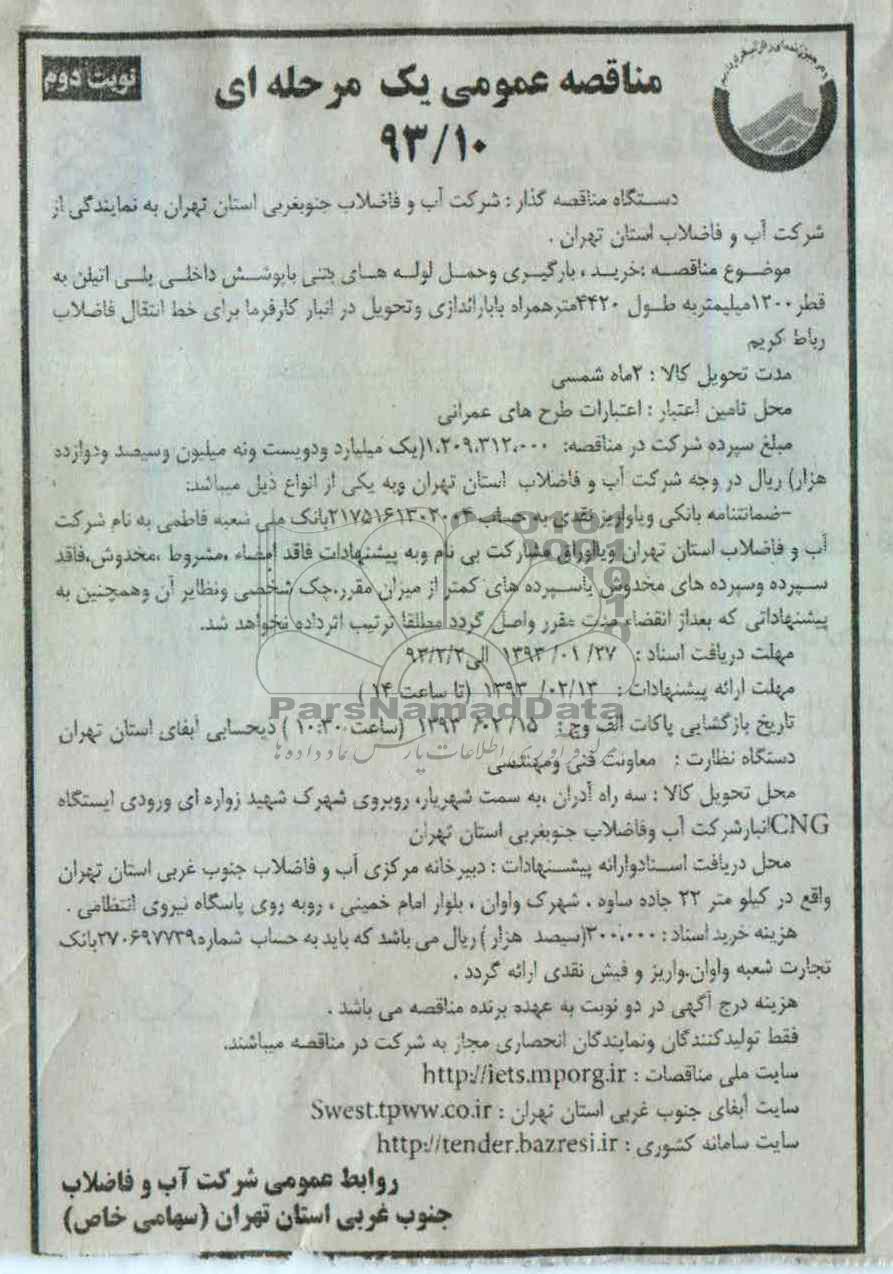 نوبت دوم
مناقصه عمومی یک مرحله ای
۹۳/۱۰
دستگاه مناقصه گذار : شرکت آب و فاضلاب جنوبغربی استان تهران به نمایندگی از
شرکت آب و فاضلاب استان تهران .
موضوع مناقصه :خرید ، بارگیری وحمل لوله های بتنی باپوشش داخلی پلی اتیلن به
قطر۱۲۰۰میلیمتربه طول ۴۴۲۰مترهمراه باباراندازی وتحویل در انبار کارفرما برای خط انتقال فاضلاب
رباط کریم
مدت تحویل کالا : ۲ماه شمسی
محل تامین اعتبار : اعتبارات طرح های عمرانی
مبلغ سپرده شرکت در مناقصه: ۱.۲۰۹.۳۱۲.۰۰۰(یک میلیارد ودویست ونه میلیون وسیصد ودوازده
هزار) ریال در وجه شرکت آب و فاضلاب استان تهران وبه یکی از انواع ذیل میباشد:
-ضمانتنامه بانکی ویاواریز نقدی به حساب ۲۱۷۵۱۶۱۳۰۲۰۰۴بانک ملی شعبه فاطمی به نام شرکت
آب و فاضلاب استان تهران ویااوراق مشارکت بی نام وبه پیشنهادات فاقد امضاء ،مشروط ،مخدوش،فاقد
سپرده وسپرده های مخدوش یاسپرده های کمتر از میزان مقرر،چک شخصی ونظایر آن وهمچنین به
پیشنهاداتی که بعداز انقضاء مدت مقرر واصل گردد مطلقا ترتیب اثرداده نخواهد شد.
مهلت دریافت اسناد : ۲۷/ ۰۱/ ۱۳۹۳ الی۹۳/۲/۲
مهلت ارائه پیشنهادات : ۰۲/۱۳/ ۱۳۹۳ (تا ساعت ۱۴ )
تاریخ بازگشایی پاکات الف وج : ۰۲/۱۵/ ۱۳۹۳ (ساعت ۱۰:۳۰ ) ذیحسابی آبفای استان تهران
دستگاه نظارت : معاونت فنی ومهندسی
محل تحویل کالا : سه راه آدران ،به سمت شهریار، روبروی شهرک شهید زواره ای ورودی ایستگاه
CNGانبارشرکت آب وفاضلاب جنوبغربی استان تهران
محل دریافت اسنادوارائه پیشنهادات : دبیرخانه مرکزی آب و فاضلاب جنوب غربی استان تهران
واقع در کیلو متر ۲۲ جاده ساوه ، شهرک واوان ، بلوار امام خمینی ، روبه روی پاسگاه نیروی انتظامی .
هزینه خرید اسناد : ۳۰۰.۰۰۰(سیصد هزار ) ریال می باشد که باید به حساب شماره۲۷۰۶۹۷۷۳۹بانک
تجارت شعبه واوان،واریز و فیش نقدی ارائه گردد .
هزینه درج آگهی در دو نوبت به عهده برنده مناقصه می باشد .
فقط تولیدکنندگان ونمایندگان انحصاری مجاز به شرکت در مناقصه میباشند.
سایت ملی مناقصات : http://iets.mporg.ir
سایت آبفای جنوب غربی استان تهران : Swest.tpww.co.ir
سایت سامانه کشوری : http://tender.bazresi.ir
روابط عمومی شرکت آب و فاضلاب
جنوب غربی استان تهران (سهامی خاص)
ParsNamadData